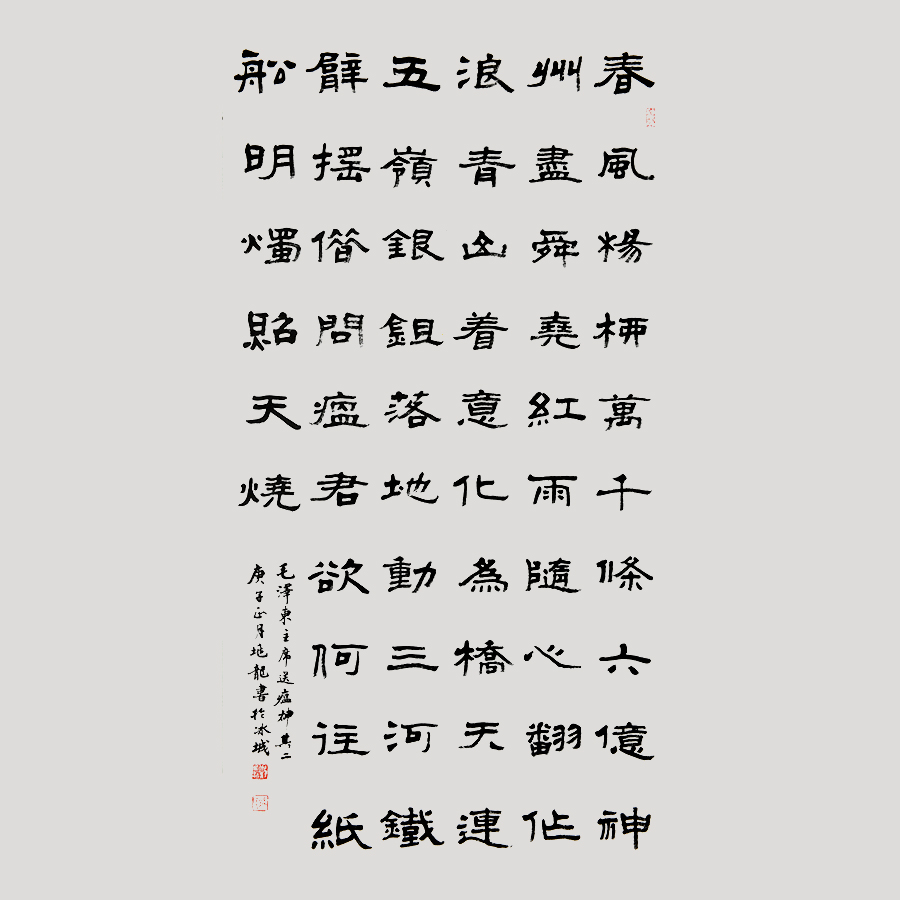 春風楊柳萬千條六億神
州盡舜堯紅雨隨心翻作
浪青山着意化為橋天連
五嶺銀鉏落地動三河鐵
臂搖借問瘟君欲何往紙
船明燭照天燒
毛澤東主席送瘟神其二
庚子正月龍書於冰城